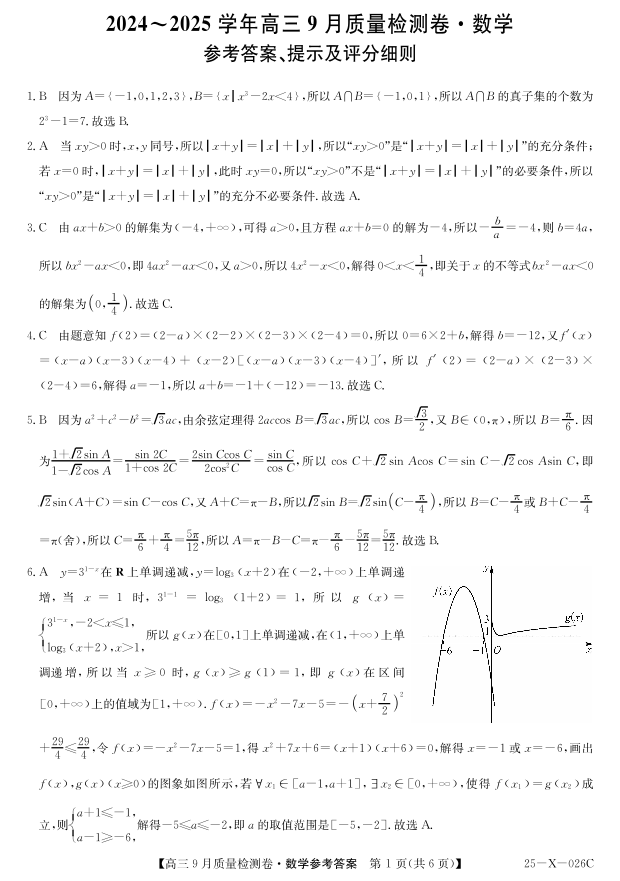 2024～2025 学年高三 9 月质量检测卷·数学
参考答案、提示及评分细则
1. B　因为 A={-1,0,1,2,3},B={x|x³-2x<4},所以 A∩B={-1,0,1},所以 A∩B 的真子集的个数为
2³-1=7. 故选 B.
2. A　当 xy>0 时,x,y 同号,所以|x+y|=|x|+|y|,所以“xy>0”是“|x+y|=|x|+|y|”的充分条件;
若 x=0 时,|x+y|=|x|+|y|,此时 xy=0,所以“xy>0”不是“|x+y|=|x|+|y|”的必要条件,所以
“xy>0”是“|x+y|=|x|+|y|”的充分不必要条件. 故选 A.
3. C　由 ax+b>0 的解集为(-4,+∞),可得 a>0,且方程 ax+b=0 的解为-4,所以-b/a=-4,则 b=4a,
所以 bx²-ax<0,即 4ax²-ax<0,又 a>0,所以 4x²-x<0,解得 0<x<1/4,即关于 x 的不等式 bx²-ax<0
的解集为(0,1/4). 故选 C.
4. C　由题意知 f(2)=(2-a)×(2-2)×(2-3)×(2-4)=0,所以 0=6×2+b,解得 b=-12,又 f′(x)
=(x-a)(x-3)(x-4)+(x-2)[(x-a)(x-3)(x-4)]′,所以 f′(2)=(2-a)×(2-3)×
(2-4)=6,解得 a=-1,所以 a+b=-1+(-12)=-13. 故选 C.
5. B　因为 a²+c²-b²=√3ac,由余弦定理得 2accos B=√3ac,所以 cos B=√3/2,又 B∈(0,π),所以 B=π/6. 因
为(1+√2sin A)/(1-√2cos A)=sin 2C/(1+cos 2C)=2sin Ccos C/2cos²C=sin C/cos C,所以 cos C+√2sin Acos C=sin C-√2cos Asin C,即
√2sin(A+C)=sin C-cos C,又 A+C=π-B,所以√2sin B=√2sin(C-π/4),所以 B=C-π/4或 B+C-π/4
=π(舍),所以 C=π/6+π/4=5π/12,所以 A=π-B-C=π-π/6-5π/12=5π/12. 故选 B.
6. A　y=3¹⁻ˣ在 R 上单调递减,y=log₃(x+2)在(-2,+∞)上单调递
增,当 x=1 时,3¹⁻¹=log₃(1+2)=1,所以 g(x)=
{3¹⁻ˣ,-2<x≤1,
log₃(x+2),x>1, 所以 g(x)在[0,1]上单调递减,在(1,+∞)上单
调递增,所以当 x≥0 时,g(x)≥g(1)=1,即 g(x)在区间
[0,+∞)上的值域为[1,+∞). f(x)=-x²-7x-5=-(x+7/2)²
+29/4≤29/4,令 f(x)=-x²-7x-5=1,得 x²+7x+6=(x+1)(x+6)=0,解得 x=-1 或 x=-6,画出
f(x),g(x)(x≥0)的图象如图所示,若∀x₁∈[a-1,a+1],∃x₂∈[0,+∞),使得 f(x₁)=g(x₂)成
立,则{a+1≤-1,
a-1≥-6, 解得-5≤a≤-2,即 a 的取值范围是[-5,-2]. 故选 A.
y
f(x)
3
g(x)
1
-6
-1
O
x
【高三 9 月质量检测卷·数学参考答案　第 1 页(共 6 页)】
25－X－026C